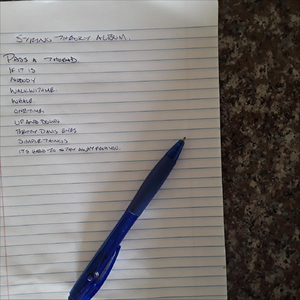 STRING THEORY ALBUM.
PASS A THREAD
IF IT IS
NOBODY
WALK WITH ME.
WHALE.
ONE TIME.
UP AND DOWN
THIRTY DAYS ENDS
SIMPLE THINGS
IT'S HARD TO STAY